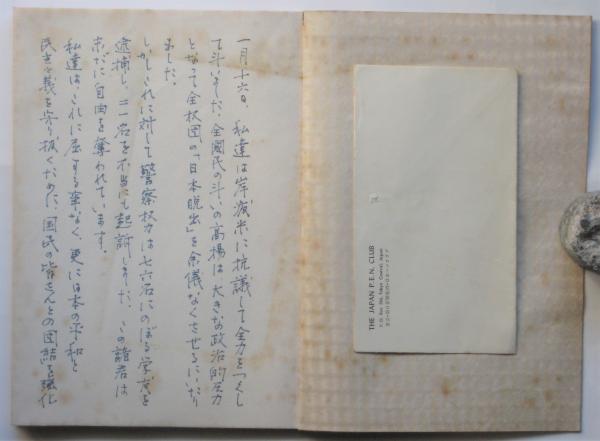 一月十六日、私達は岸渡米に抗議して全力をつくし
て斗いました。全國民の斗いの高揚は大きな政治的圧力
となって全权団の「日本脱出」を余儀なくさせるにいたり
ました。
しかしこれに対して警察权力は七六名にのぼる学友を
逮捕し、二一名を不当にも起訴しました。この諸君は
未だに自由を奪われています。
私達は、これに屈する事なく、更に日本の平和と
民主々義を守り抜くために、国民の皆さんとの団結を強化
THE JAPAN P.E.N. CLUB